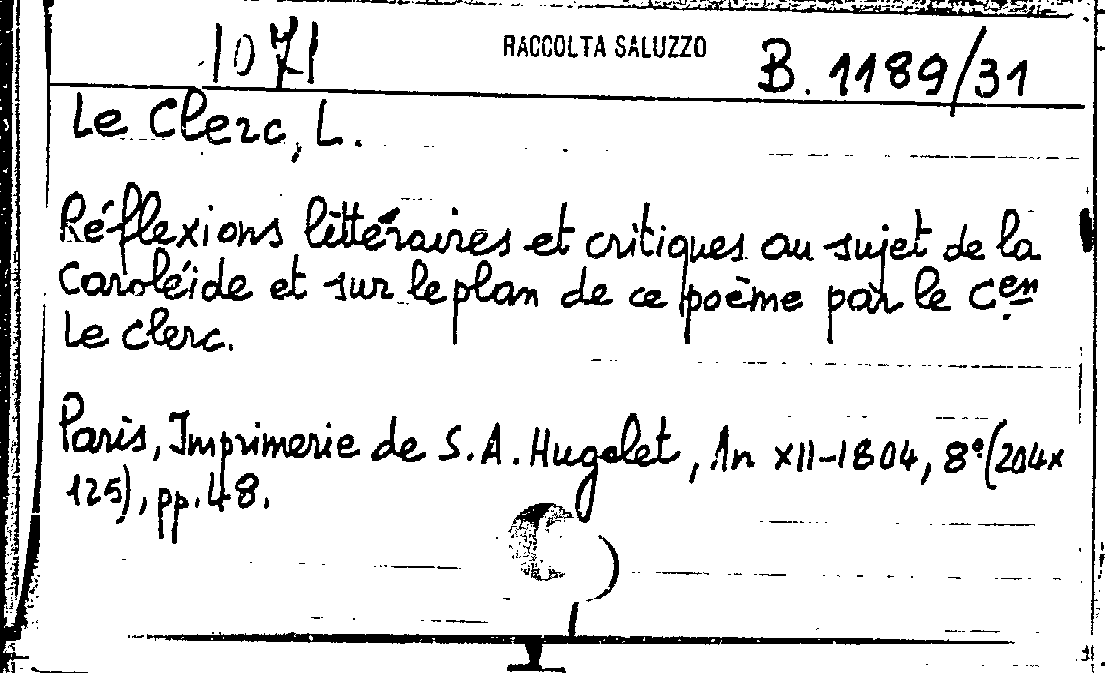 1071 RACCOLTA SALUZZO B. 1189/31
Le Clerc, L.
Réflexions littéraires et critiques au sujet de la
Caroléide et sur le plan de ce poème par le Cen
Le Clerc.
Paris, Imprimerie de S.A. Hugelet, An XII-1804, 8° (204x
125), pp. 48.